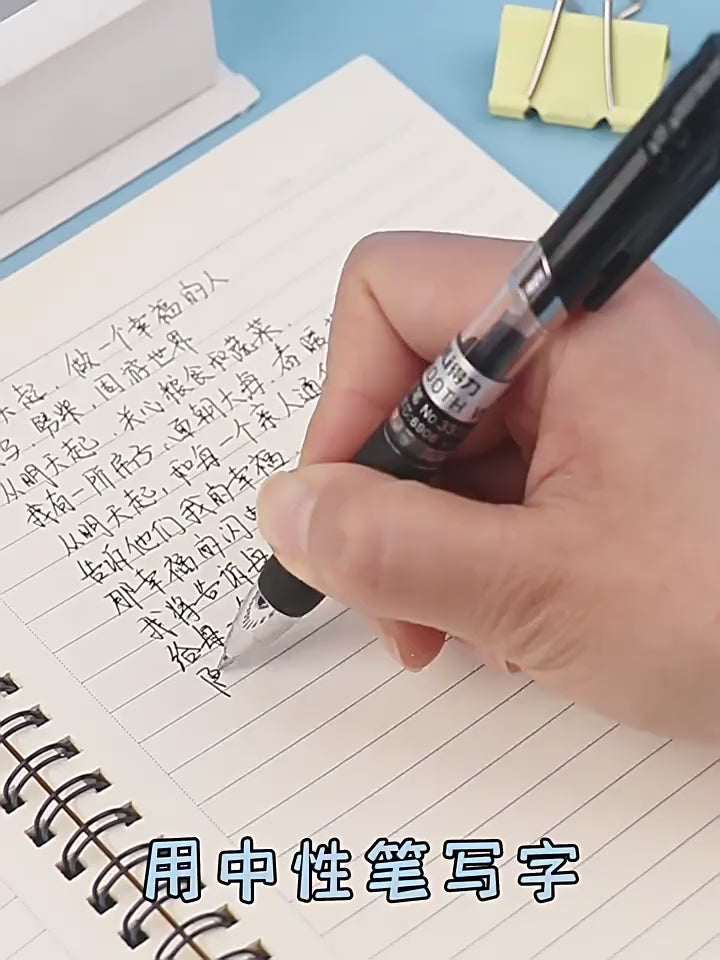 天起，做一个幸福的人
马，劈柴，周游世界
从明天起，关心粮食和蔬菜
我有一所房子，面朝大海，春暖
从明天起，和每一个亲人通
告诉他们我的幸福
那幸福的闪
我将告诉每
给每
得力
OOTH
No.33
6906
用中性笔写字